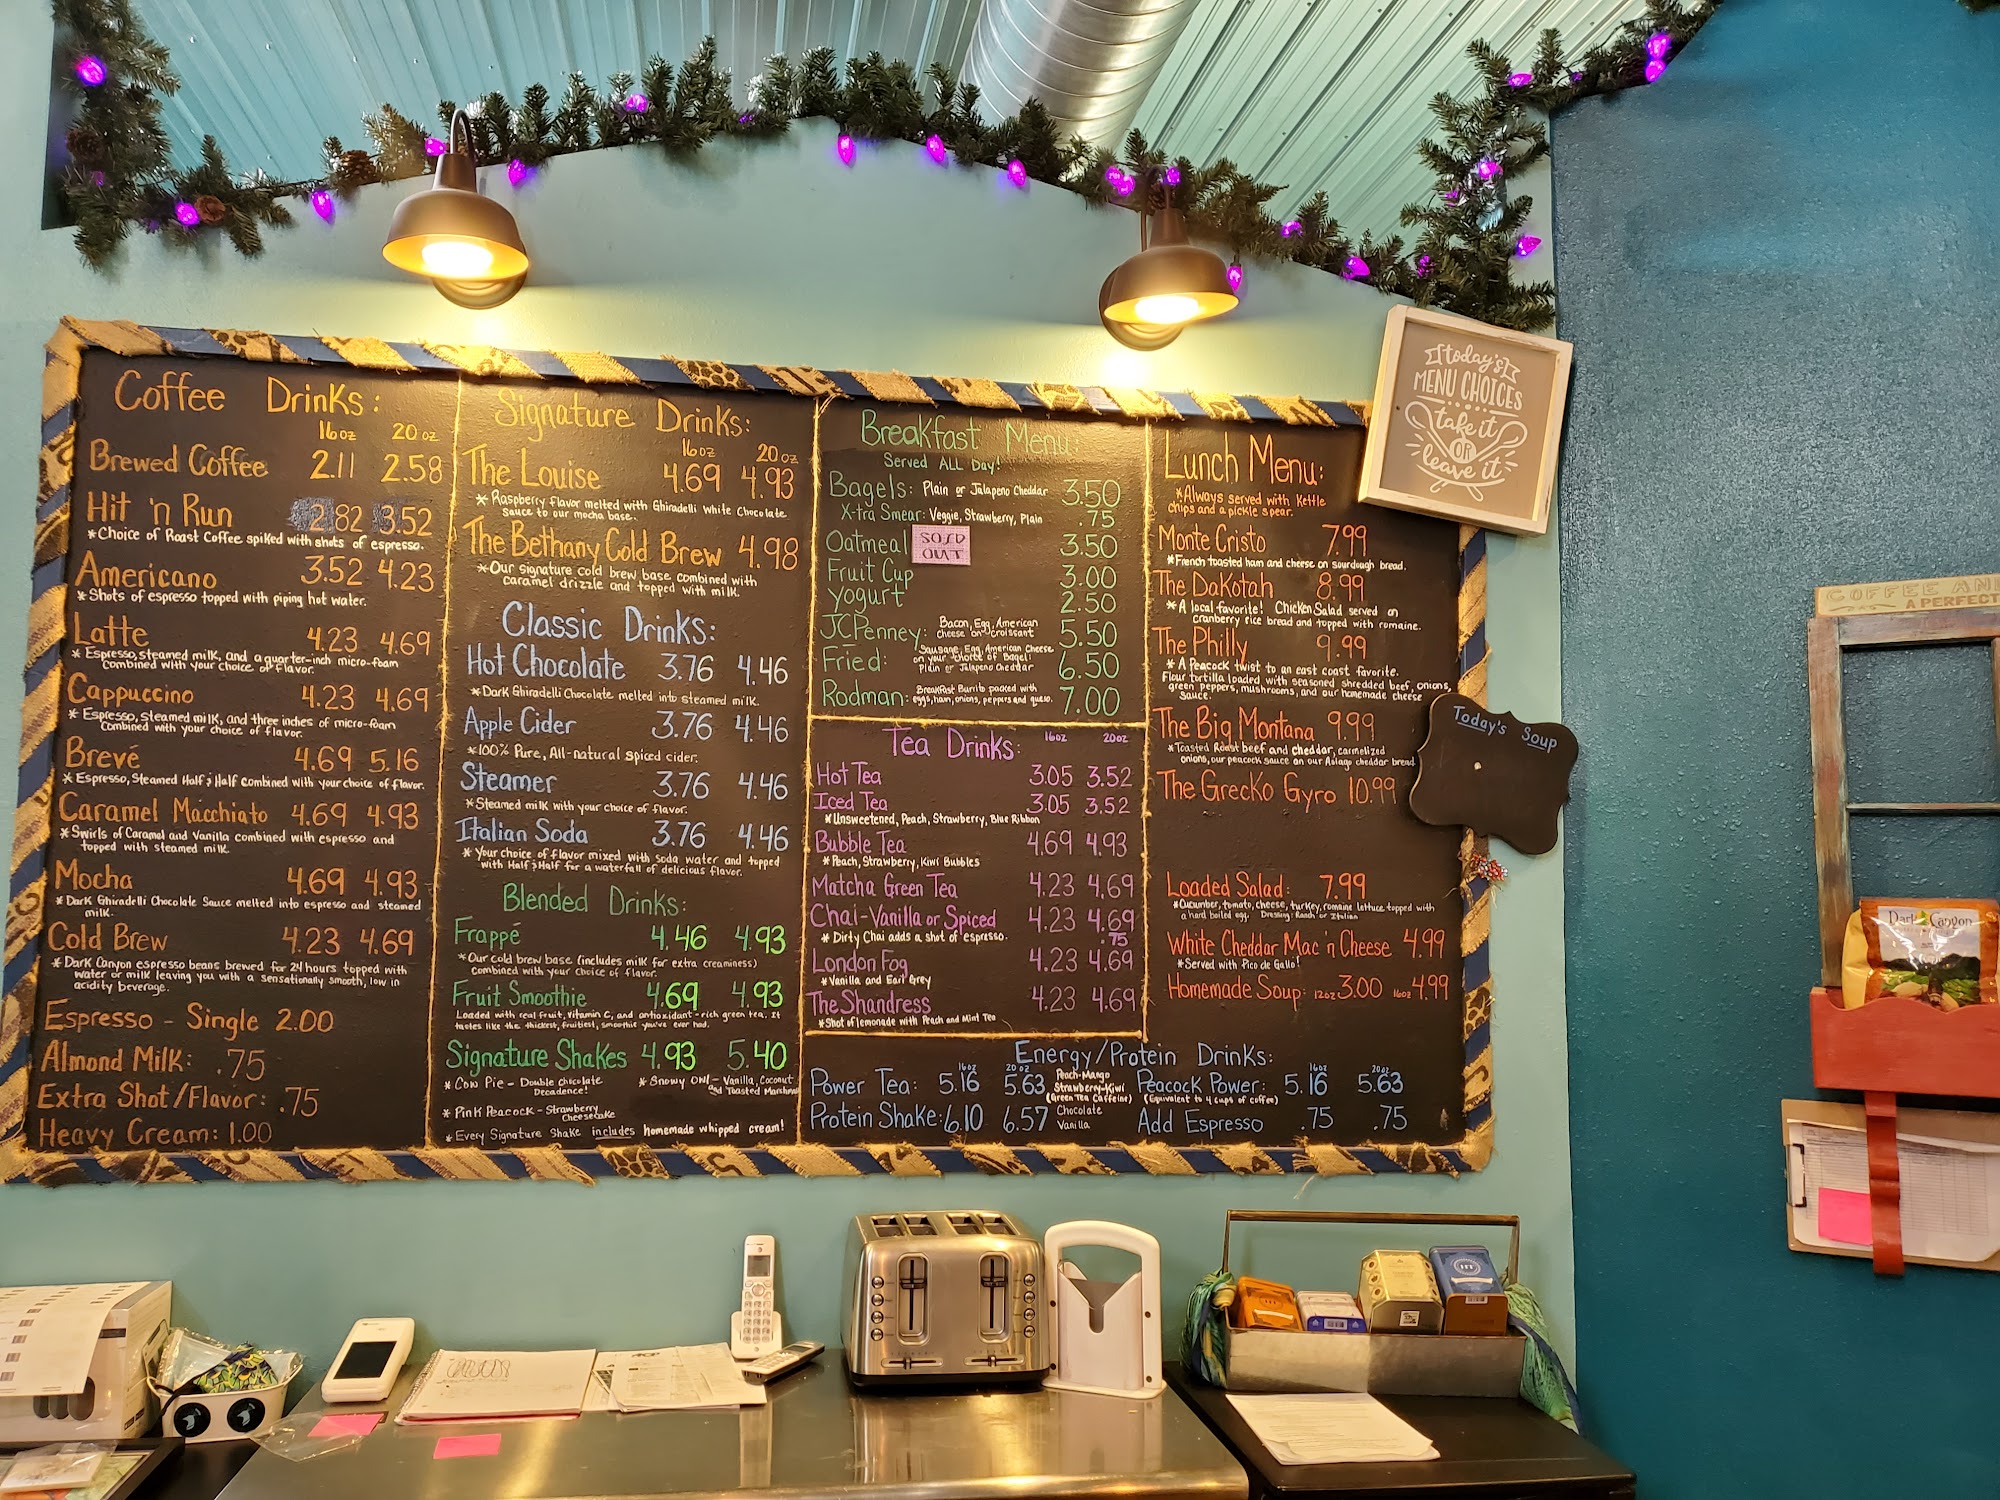 Coffee Drinks:
16oz 20oz
Brewed Coffee 2.11 2.58
Hit 'n Run 2.82 3.52
*Choice of Roast Coffee spiked with shots of espresso.
Americano 3.52 4.23
*Shots of espresso topped with piping hot water.
Latte 4.23 4.69
*Espresso, steamed milk, and a quarter-inch micro-foam
combined with your choice of flavor.
Cappuccino 4.23 4.69
*Espresso, steamed milk, and three inches of micro-foam
combined with your choice of flavor.
Brevé 4.69 5.16
*Espresso, Steamed Half & Half combined with your choice of flavor.
Caramel Macchiato 4.69 4.93
*Swirls of Caramel and Vanilla combined with espresso and
topped with steamed milk.
Mocha 4.69 4.93
*Dark Ghiradelli Chocolate Sauce melted into espresso and steamed
milk.
Cold Brew 4.23 4.69
*Dark Canyon espresso beans brewed for 24 hours topped with
water or milk leaving you with a sensationally smooth, low in
acidity beverage.
Espresso - Single 2.00
Almond Milk: .75
Extra Shot/Flavor: .75
Heavy Cream: 1.00
Signature Drinks:
16oz 20oz
The Louise 4.69 4.93
*Raspberry flavor melted with Ghiradelli White Chocolate
sauce to our mocha base.
The Bethany Cold Brew 4.98
*Our signature cold brew base combined with
caramel drizzle and topped with milk.
Classic Drinks:
Hot Chocolate 3.76 4.46
*Dark Ghiradelli Chocolate melted into steamed milk.
Apple Cider 3.76 4.46
*100% Pure, All-natural spiced cider.
Steamer 3.76 4.46
*Steamed milk with your choice of flavor.
Italian Soda 3.76 4.46
*Your choice of flavor mixed with soda water and topped
with Half & Half for a waterfall of delicious flavor.
Blended Drinks:
Frappé 4.46 4.93
*Our cold brew base (includes milk for extra creaminess)
combined with your choice of flavor.
Fruit Smoothie 4.69 4.93
Loaded with real fruit, vitamin C, and antioxidant-rich green tea. It
tastes like the thickest, fruitiest, smoothie you've ever had.
Signature Shakes 4.93 5.40
*Cow Pie - Double chocolate
Decadence!
*Snowy Owl - Vanilla, Coconut
and Toasted Marshmal
*Pink Peacock - Strawberry
Cheesecake
*Every Signature Shake includes homemade whipped cream!
Breakfast Menu:
Served ALL Day!
Bagels: Plain or Jalapeno Cheddar 3.50
X-tra Smear: Veggie, Strawberry, Plain .75
Oatmeal SOLD OUT 3.50
Fruit Cup 3.00
yogurt 2.50
JCPenney: Bacon, Egg, American
cheese on croissant 5.50
Fried: Sausage, Egg, American Cheese
on your choice of Bagel!
Plain or Jalapeno Cheddar 6.50
Rodman: Breakfast Burrito packed with
eggs, ham, onions, peppers and queso. 7.00
Tea Drinks: 16oz 20oz
Hot Tea 3.05 3.52
Iced Tea 3.05 3.52
*Unsweetened, Peach, Strawberry, Blue Ribbon
Bubble Tea 4.69 4.93
*Peach, Strawberry, Kiwi Bubbles
Matcha Green Tea 4.23 4.69
Chai-Vanilla or Spiced 4.23 4.69
*Dirty Chai adds a shot of espresso. .75
London Fog 4.23 4.69
*Vanilla and Earl Grey
The Shandress 4.23 4.69
*Shot of lemonade with Peach and Mint Tea
Lunch Menu:
*Always served with Kettle
chips and a pickle spear.
Monte Cristo 7.99
*French toasted ham and cheese on sourdough bread.
The Dakotah 8.99
*A local favorite! Chicken Salad served on
cranberry rice bread and topped with romaine.
The Philly 9.99
*A Peacock twist to an east coast favorite.
Flour tortilla loaded with seasoned shredded beef, onions,
green peppers, mushrooms, and our homemade cheese
sauce.
The Big Montana 9.99
*Toasted Roast beef and cheddar, carmelized
onions, our peacock sauce on our Asiago cheddar bread
The Grecko Gyro 10.99
Loaded Salad: 7.99
*Cucumber, tomato, cheese, turkey, romaine lettuce topped with
a hard boiled egg. Dressing: Ranch or Italian
White Cheddar Mac 'n Cheese 4.99
*Served with Pico de Gallo!
Homemade Soup: 12oz 3.00 16oz 4.99
Energy/Protein Drinks:
16oz 20oz
Power Tea: 5.16 5.63 Peach-Mango
Strawberry-Kiwi
(Green Tea Caffeine)
Protein Shake: 6.10 6.57 Chocolate
Vanilla
16oz 20oz
Peacock Power: 5.16 5.63
(Equivalent to 4 cups of coffee)
Add Espresso .75 .75
today's
MENU CHOICES
take it
OR
leave it
Today's Soup
COFFEE AN
A PERFECT
Dark Canyon